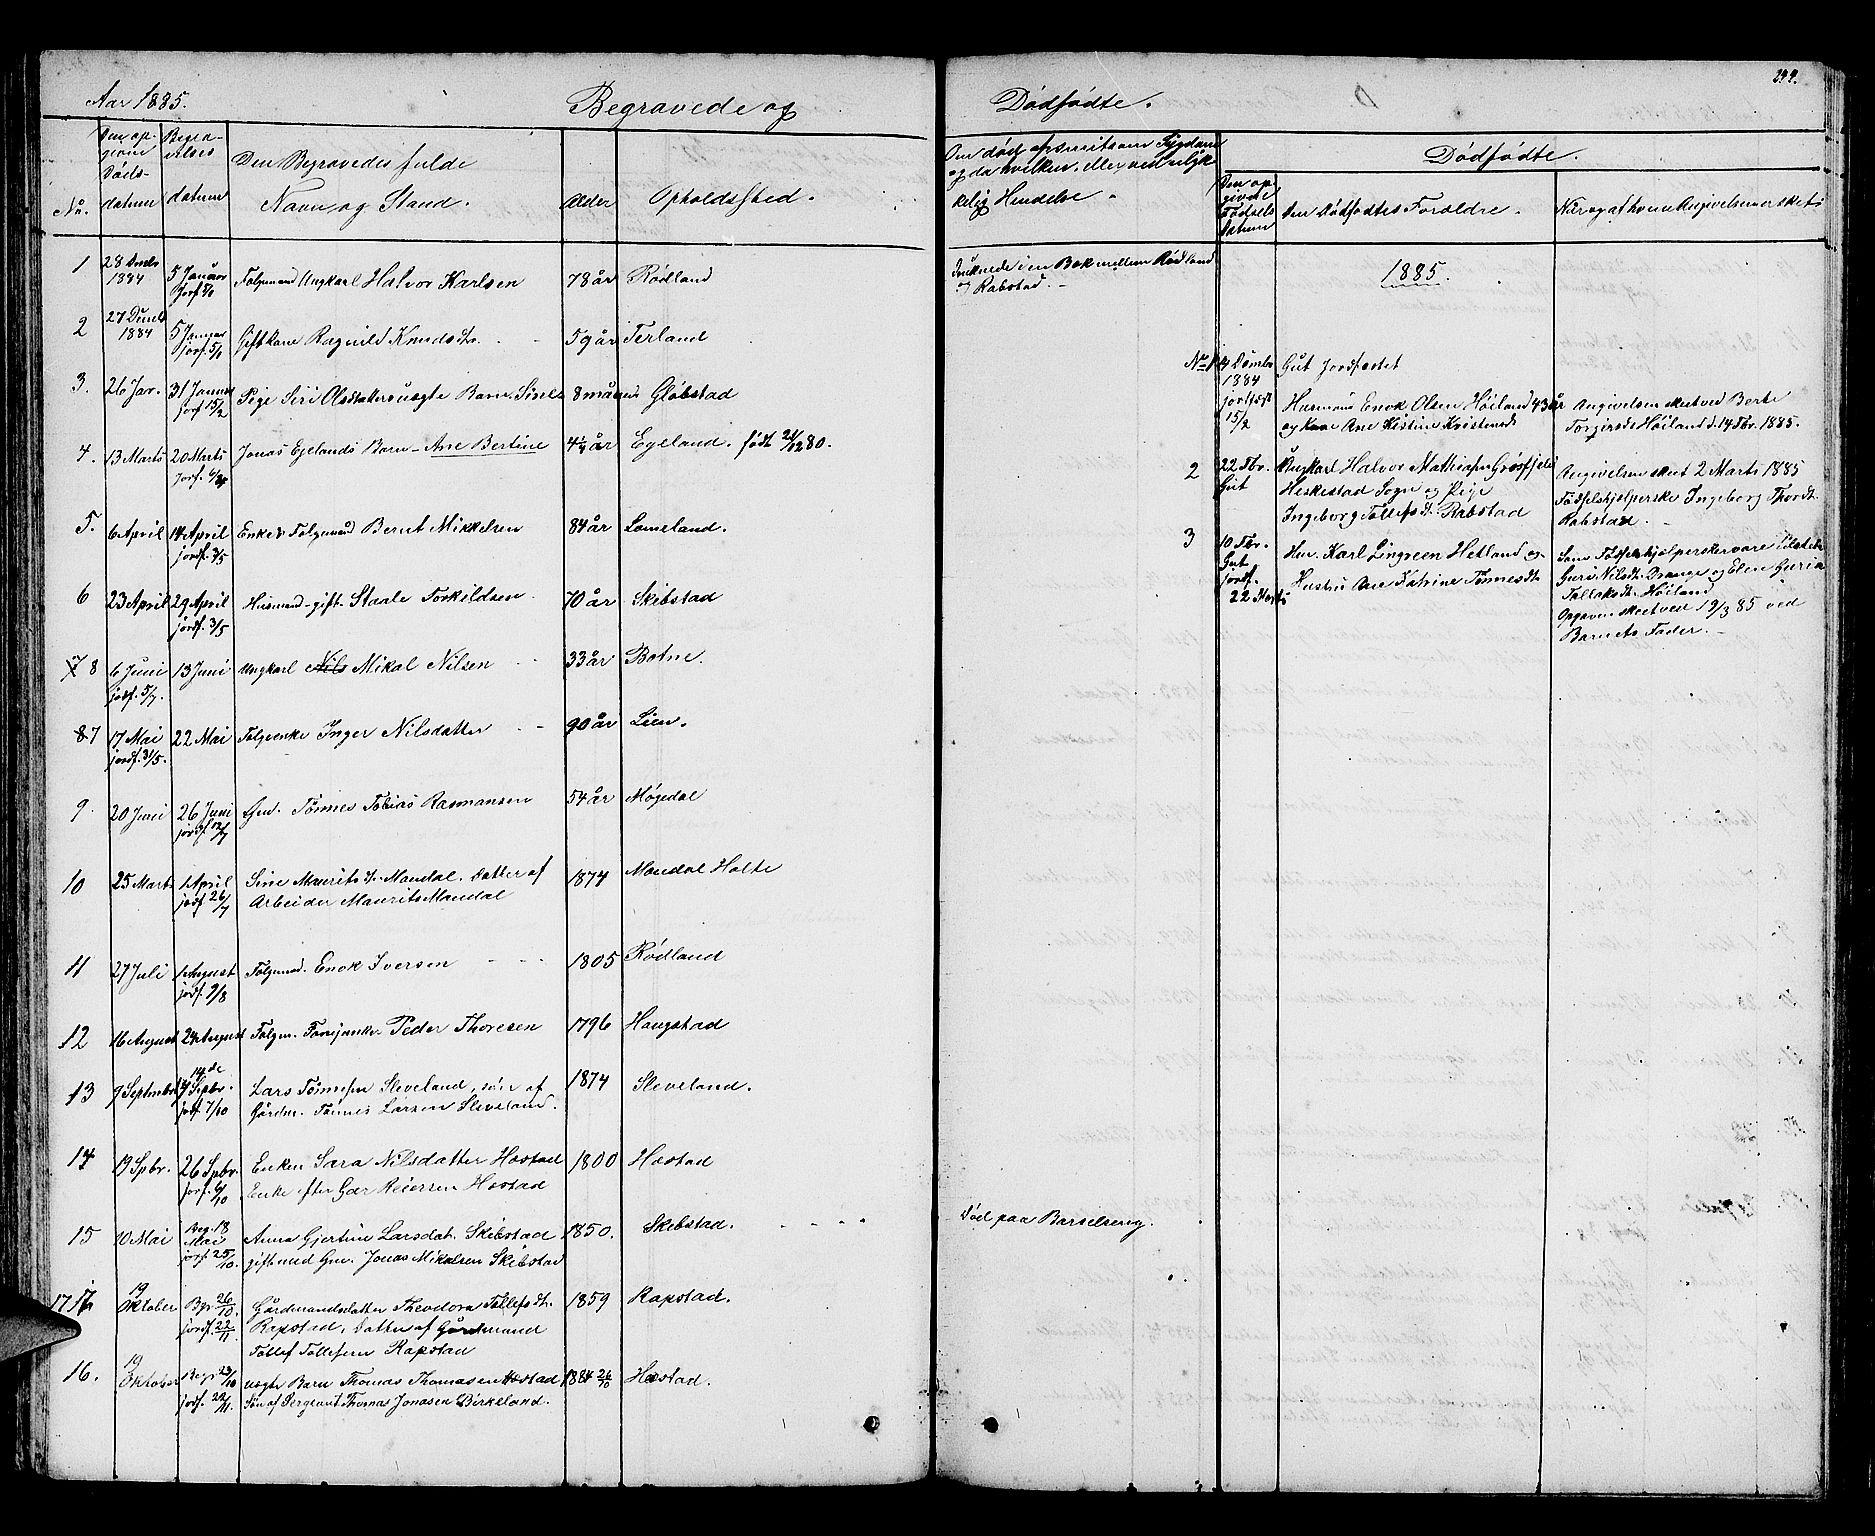 Aar 1885. Begravede og Dødfødte. 299.
No. Den opgivne Døds-datum Begravelses datum Den Begravedes fulde Navn og Stand. Alder Opholdssted.
Om død af smitsom Sygdom og da hvilken, eller ved ulykkelig Hendelse.
Dødfødte.
Den opgivne Fødsels Datum Den Dødfødtes Forældre. Naar og af hvem Angivelsen er sket
1 28 Decbr 1884 5 Januar Jorf. 5/1 Følgemand Ungkarl Halvor Karlsen 78 år Rødland
Druknede i en Bæk mellem Rødland og Rabstad.
2 27 Decbr 1884 5 Januar jorf. 5/1 Gift Kone Ragnild Knudsdtr. 59 år Terland
3. 26 Jar. 31 Januar jorf 15/2 Pige Siri Olsdatters uægte Barn, Sines 8 måned Gløbstad
4. 13 Marts 20 Marts Jorf. Jonas Egelands Barn - Ane Bertine 4 1/4 år Egeland. født 21/12 80.
5. 6 April 14 April jordf. 3/5 Enkem Følgemand Bernt Mikkelsen 84 år Lomeland.
6 23 April 29 April jordf. 3/5 Husmand - gift. Staale Torkildsen 70 år Skibstad
7 8 6 Juni jorf. 5/7. 13 Juni Ungkarl Nils Mikal Nilsen 33 år Botne.
8 7 17 Mai jordf. 31/5. 22 Mai Følgeenke Inger Nilsdatter 90 år Lien.
9. 20 Juni 26 Juni jordf. 12/7 Gmd. Tønnes Tobias Rasmussen 54 år Møgedal
10 25 Marts 1 April jorf 26/7 Sine Maurits d. Mandal. Datter af
Arbeider Maurits Mandal 1874 Mandal Holte
11 27 Juli 1 August jorf. 9/8 Følgemd. Enok Iversen 1805 Rødland
12 16 August 24 August Følgm. Peder Thoresen 1796 Haugstad
13 9 Septmbr 14de Spbr. jorf 7/10 Lars Tønnesen Sleveland, søn af
Gårdm. Tønnes Larsen Sleveland. 1874 Sleveland.
14 19 Spbr. 26 Spbr. jorf. Enken Sara Nilsdatter Hæstad
Enke efter Gdr Reiersen Hæstad 1800 Hæstad
15 10 Mai Beg. 18 Mai jorf 25/10. Anna Gjertine Larsdat. Skibstad
gift med Gm. Jonas Mikalsen Skibstad 1850. Skibstad.
Død paa Barselseng.
17 19 Oktober Bgr 26/10. jordf. 22/11 Gårdmandsdatter Theodora Tollefsdt.
Rapstad, Datter af Gårdmand
Tollef Tollefsen Rapstad 1859 Rapstad.
16. 19 Oktober Begr 23/10 jorf. 22/11. uægte Barn Thomas Thomasen Hæstad
Søn af Sergeant Thomas Jonasen Birkeland. 1884 26/10 Hæstad.
1885.
No 1 4 Dcmbr 1884 jordfæst 15/2 Gut Jordfæstet
Husmand Enok Olsen Høiland 43 år
og Kone Ane Kistine Kristensd
Angivelsen skeet ved Berte
Torgersd. Høiland d. 14 Fbr. 1885.
2 22 Fbr. Gut Ungkarl Halvor Mathiasen Grøsfjeld
Heskestad Sogn og Pige
Ingeborg Tollefsdt. Rabstad
Angivelsen skeet 2 Marts 1885
Fødselshjelperske Ingeborg Thordt.
Rabstad.
3 10 Fbr. Gut jordf. 22 Marts Hm. Karl Lingreen Hetland og
Hustru Ane Katrine Tønnesdt.
Som Fødselshjelpersker vare tilstede
Guri Nilsdt. Drange og Elen Guria
Tollaksdt. Høiland
Opgaven skeet ved 19/3 85 ved
Barnets Fader.